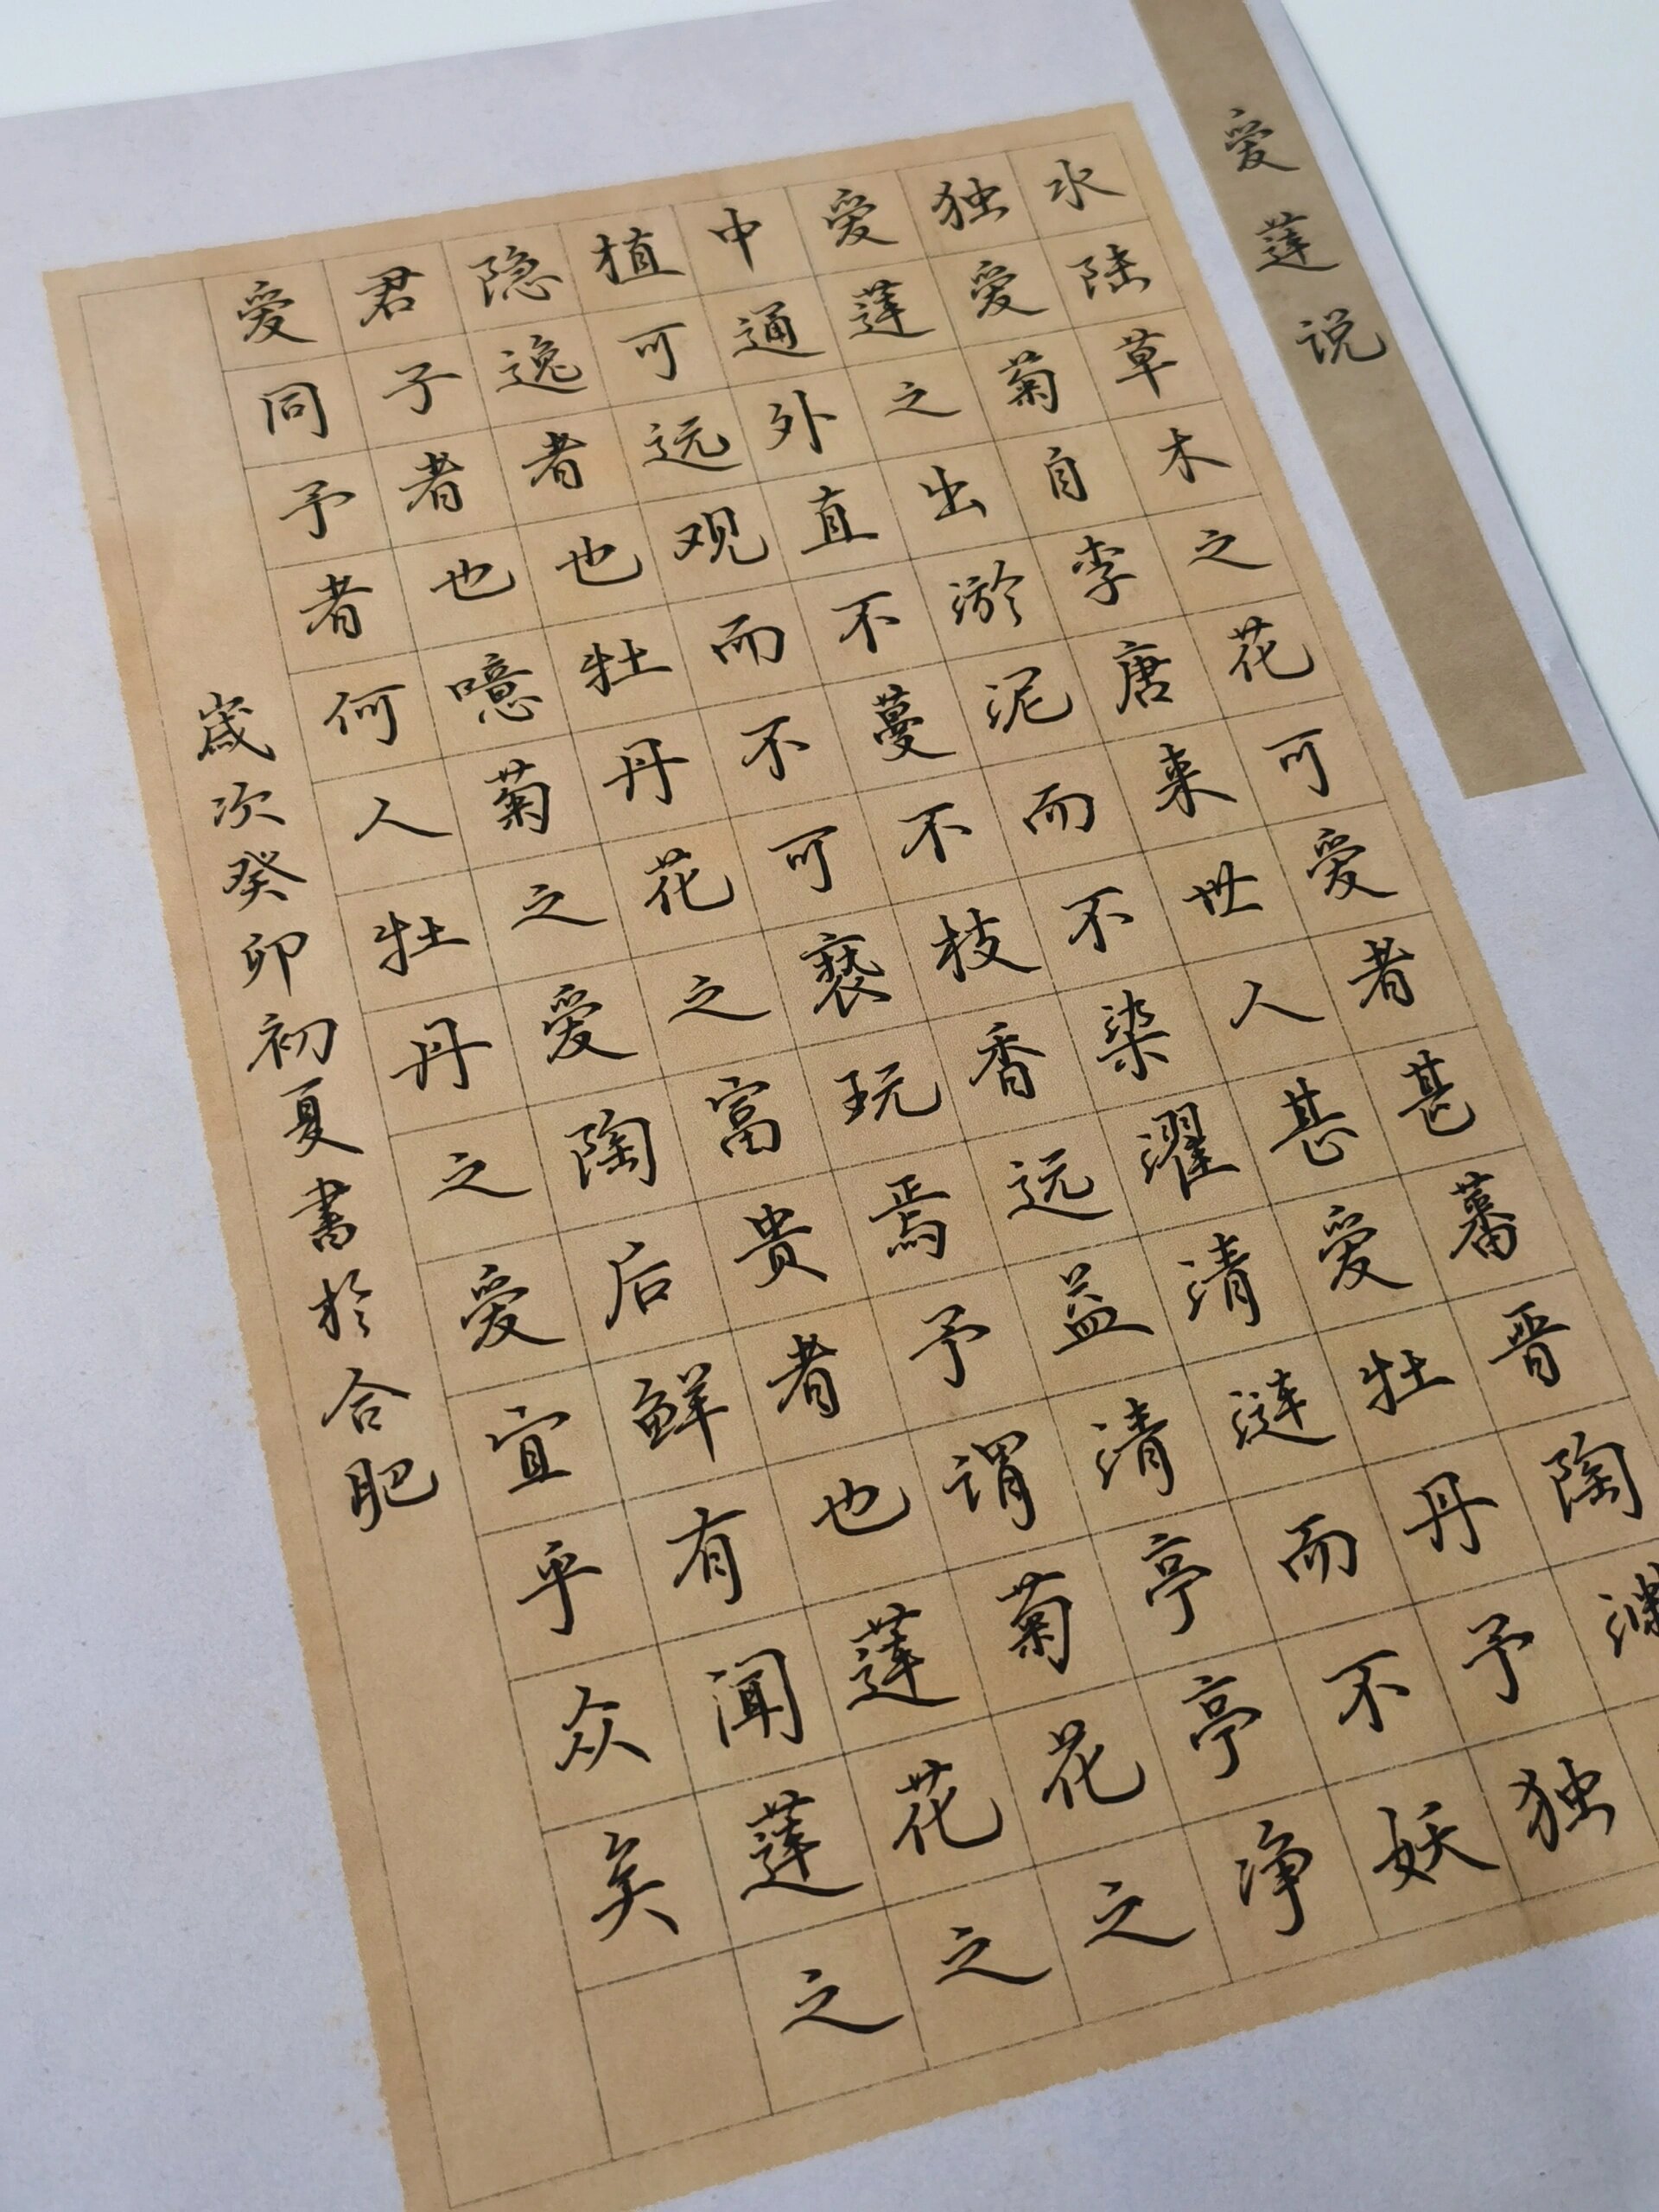 爱莲说
水陆草木之花可爱者甚蕃晋陶渊
独爱菊自李唐来世人甚爱牡丹予独
爱莲之出淤泥而不染濯清涟而不妖
中通外直不蔓不枝香远益清亭亭净
植可远观而不可亵玩焉予谓菊花之
隐逸者也牡丹花之富贵者也莲花之
君子者也噫菊之爱陶后鲜有闻莲之
爱同予者何人牡丹之爱宜乎众矣
嵗次癸卯初夏書於合肥